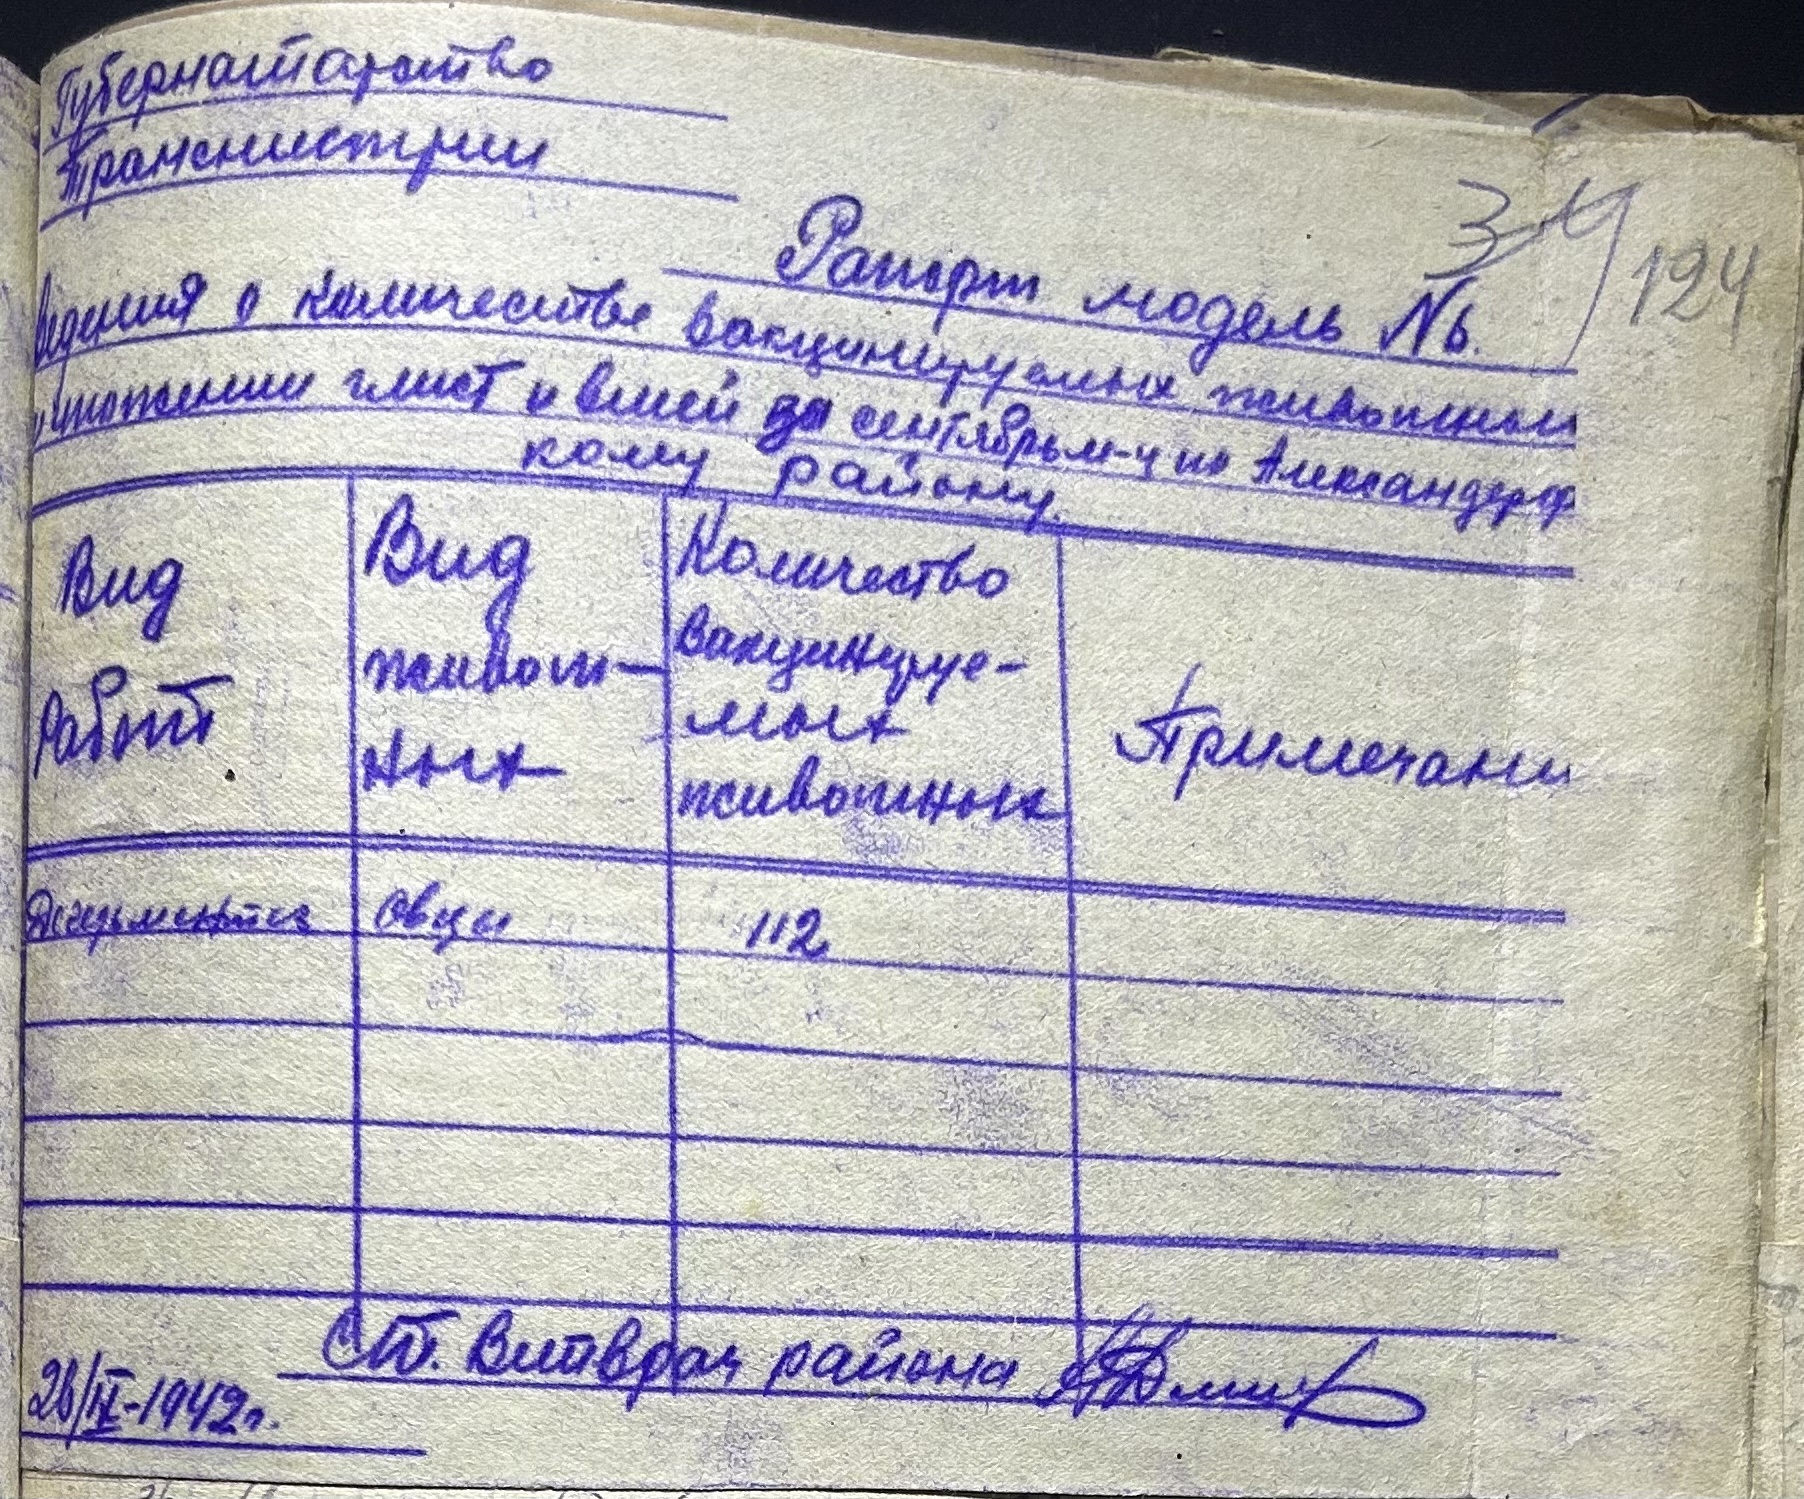 Губернатарство
Транснистрии
34
124
Рапорт модель №6.
ведения о количестве вакцинируемых животных
ичтожении глист и вшей за сентябрь м-ц по Александерф
кому району.
Вид работ
Вид живот-ных
Количество вакцинируе-мых животных
Примечани
овцы
112
Ст. Ветврач района
26/IX-1942г.